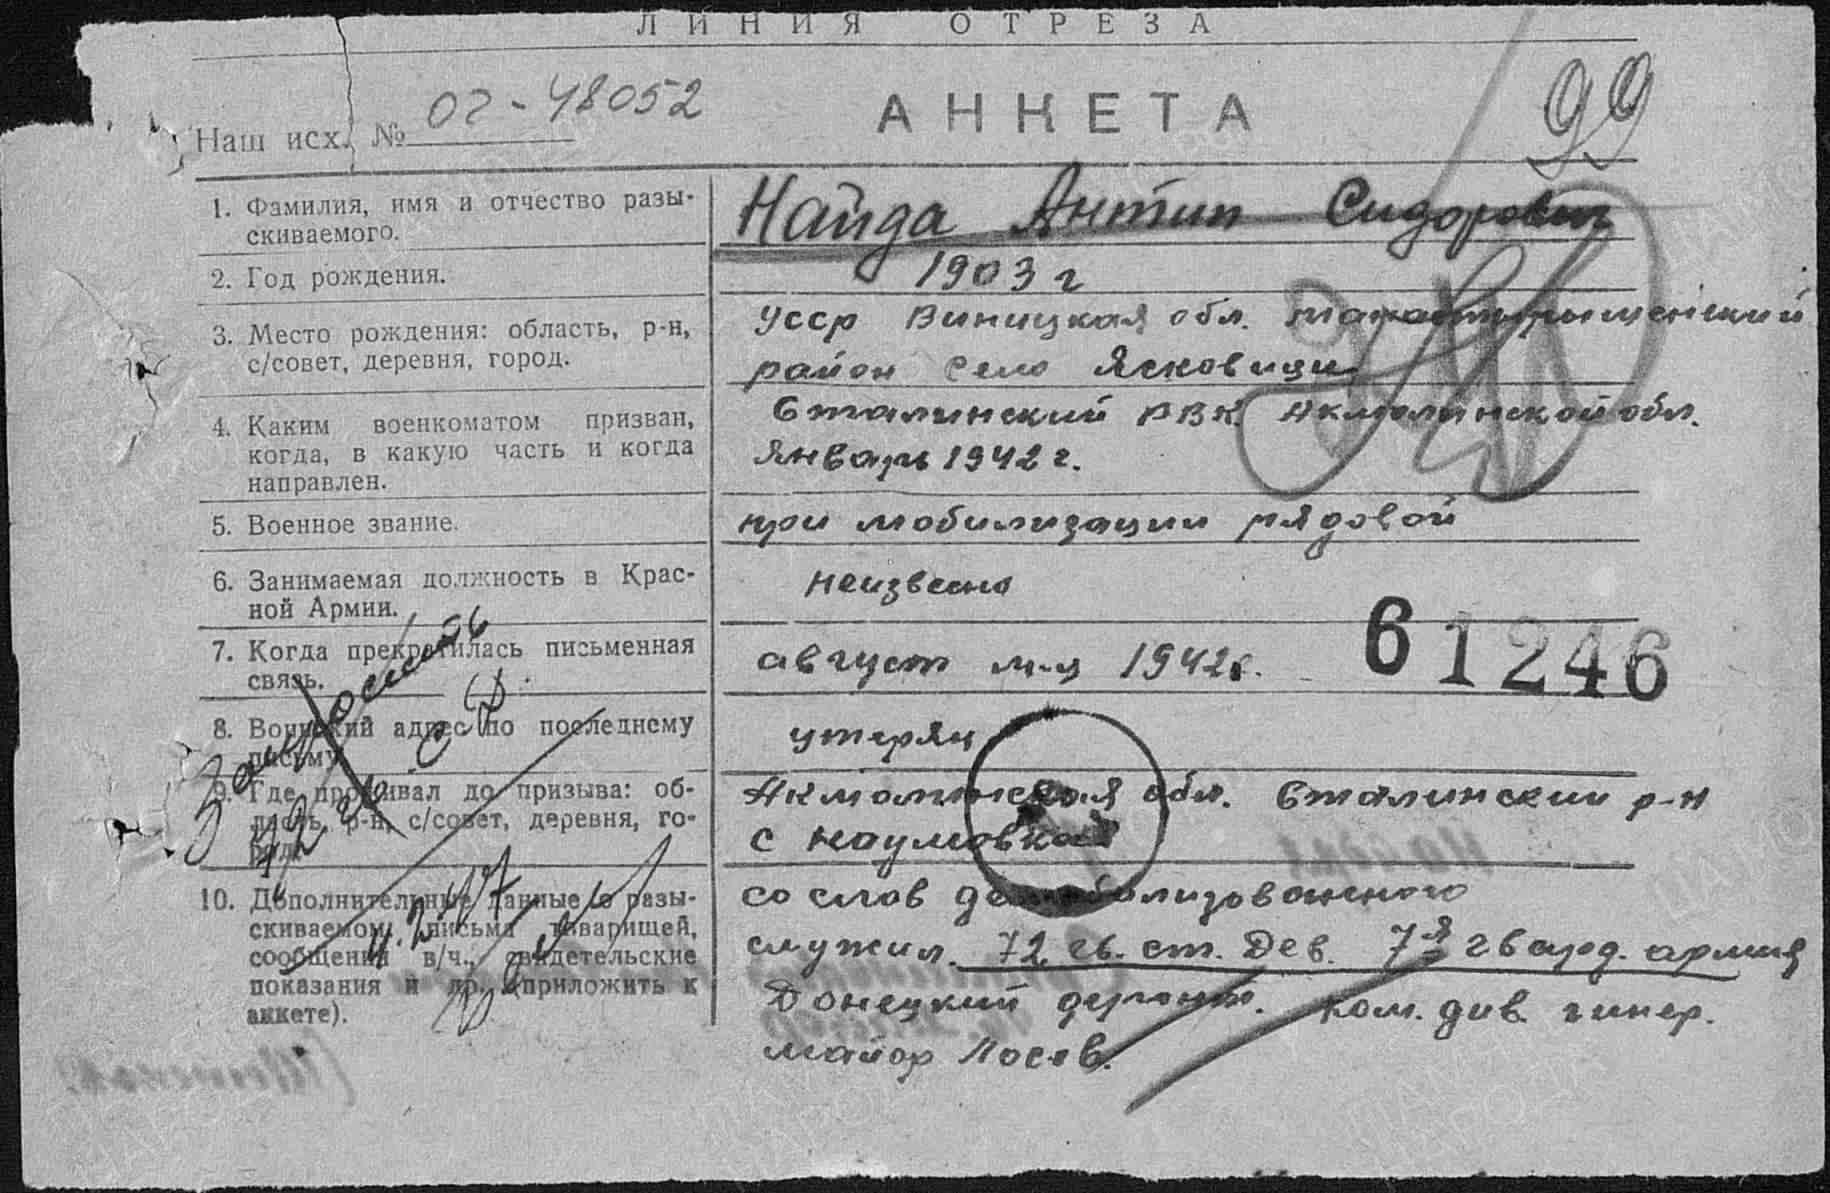 ЛИНИЯ ОТРЕЗА
Наш исх. № 02-48052
АНКЕТА
99
1. Фамилия, имя и отчество разы-
скиваемого.
Найда Антип Сидорович
2. Год рождения.
1903 г
3. Место рождения: область, р-н,
с/совет, деревня, город.
УССР Виницкая обл.
район село Ясковици
4. Каким военкоматом призван,
когда, в какую часть и когда
направлен.
Сталинский РВК Акмолинской обл.
Январь 1942 г.
5. Военное звание.
при мобилизации рядовой
6. Занимаемая должность в Крас-
ной Армии.
неизвесно
7. Когда прекратилась письменная
связь.
август м-ц 1942 г.
61246
8. Воинский адрес по последнему
письму
утерян
9. Где проживал до призыва: об-
ласть, р-н, с/совет, деревня, го-
род.
Акмолинская обл. Сталинский р-н
с Наумовка
10. Дополнительные данные о разы-
скиваемом: письма товарищей,
сообщения в/ч., свидетельские
показания и др. (приложить к
анкете).
со слов демобилизованного
служил. 72 гв. ст. Дев. 7я гвард. армия
Донецкий ком. див. гинер.
майор Лосев.